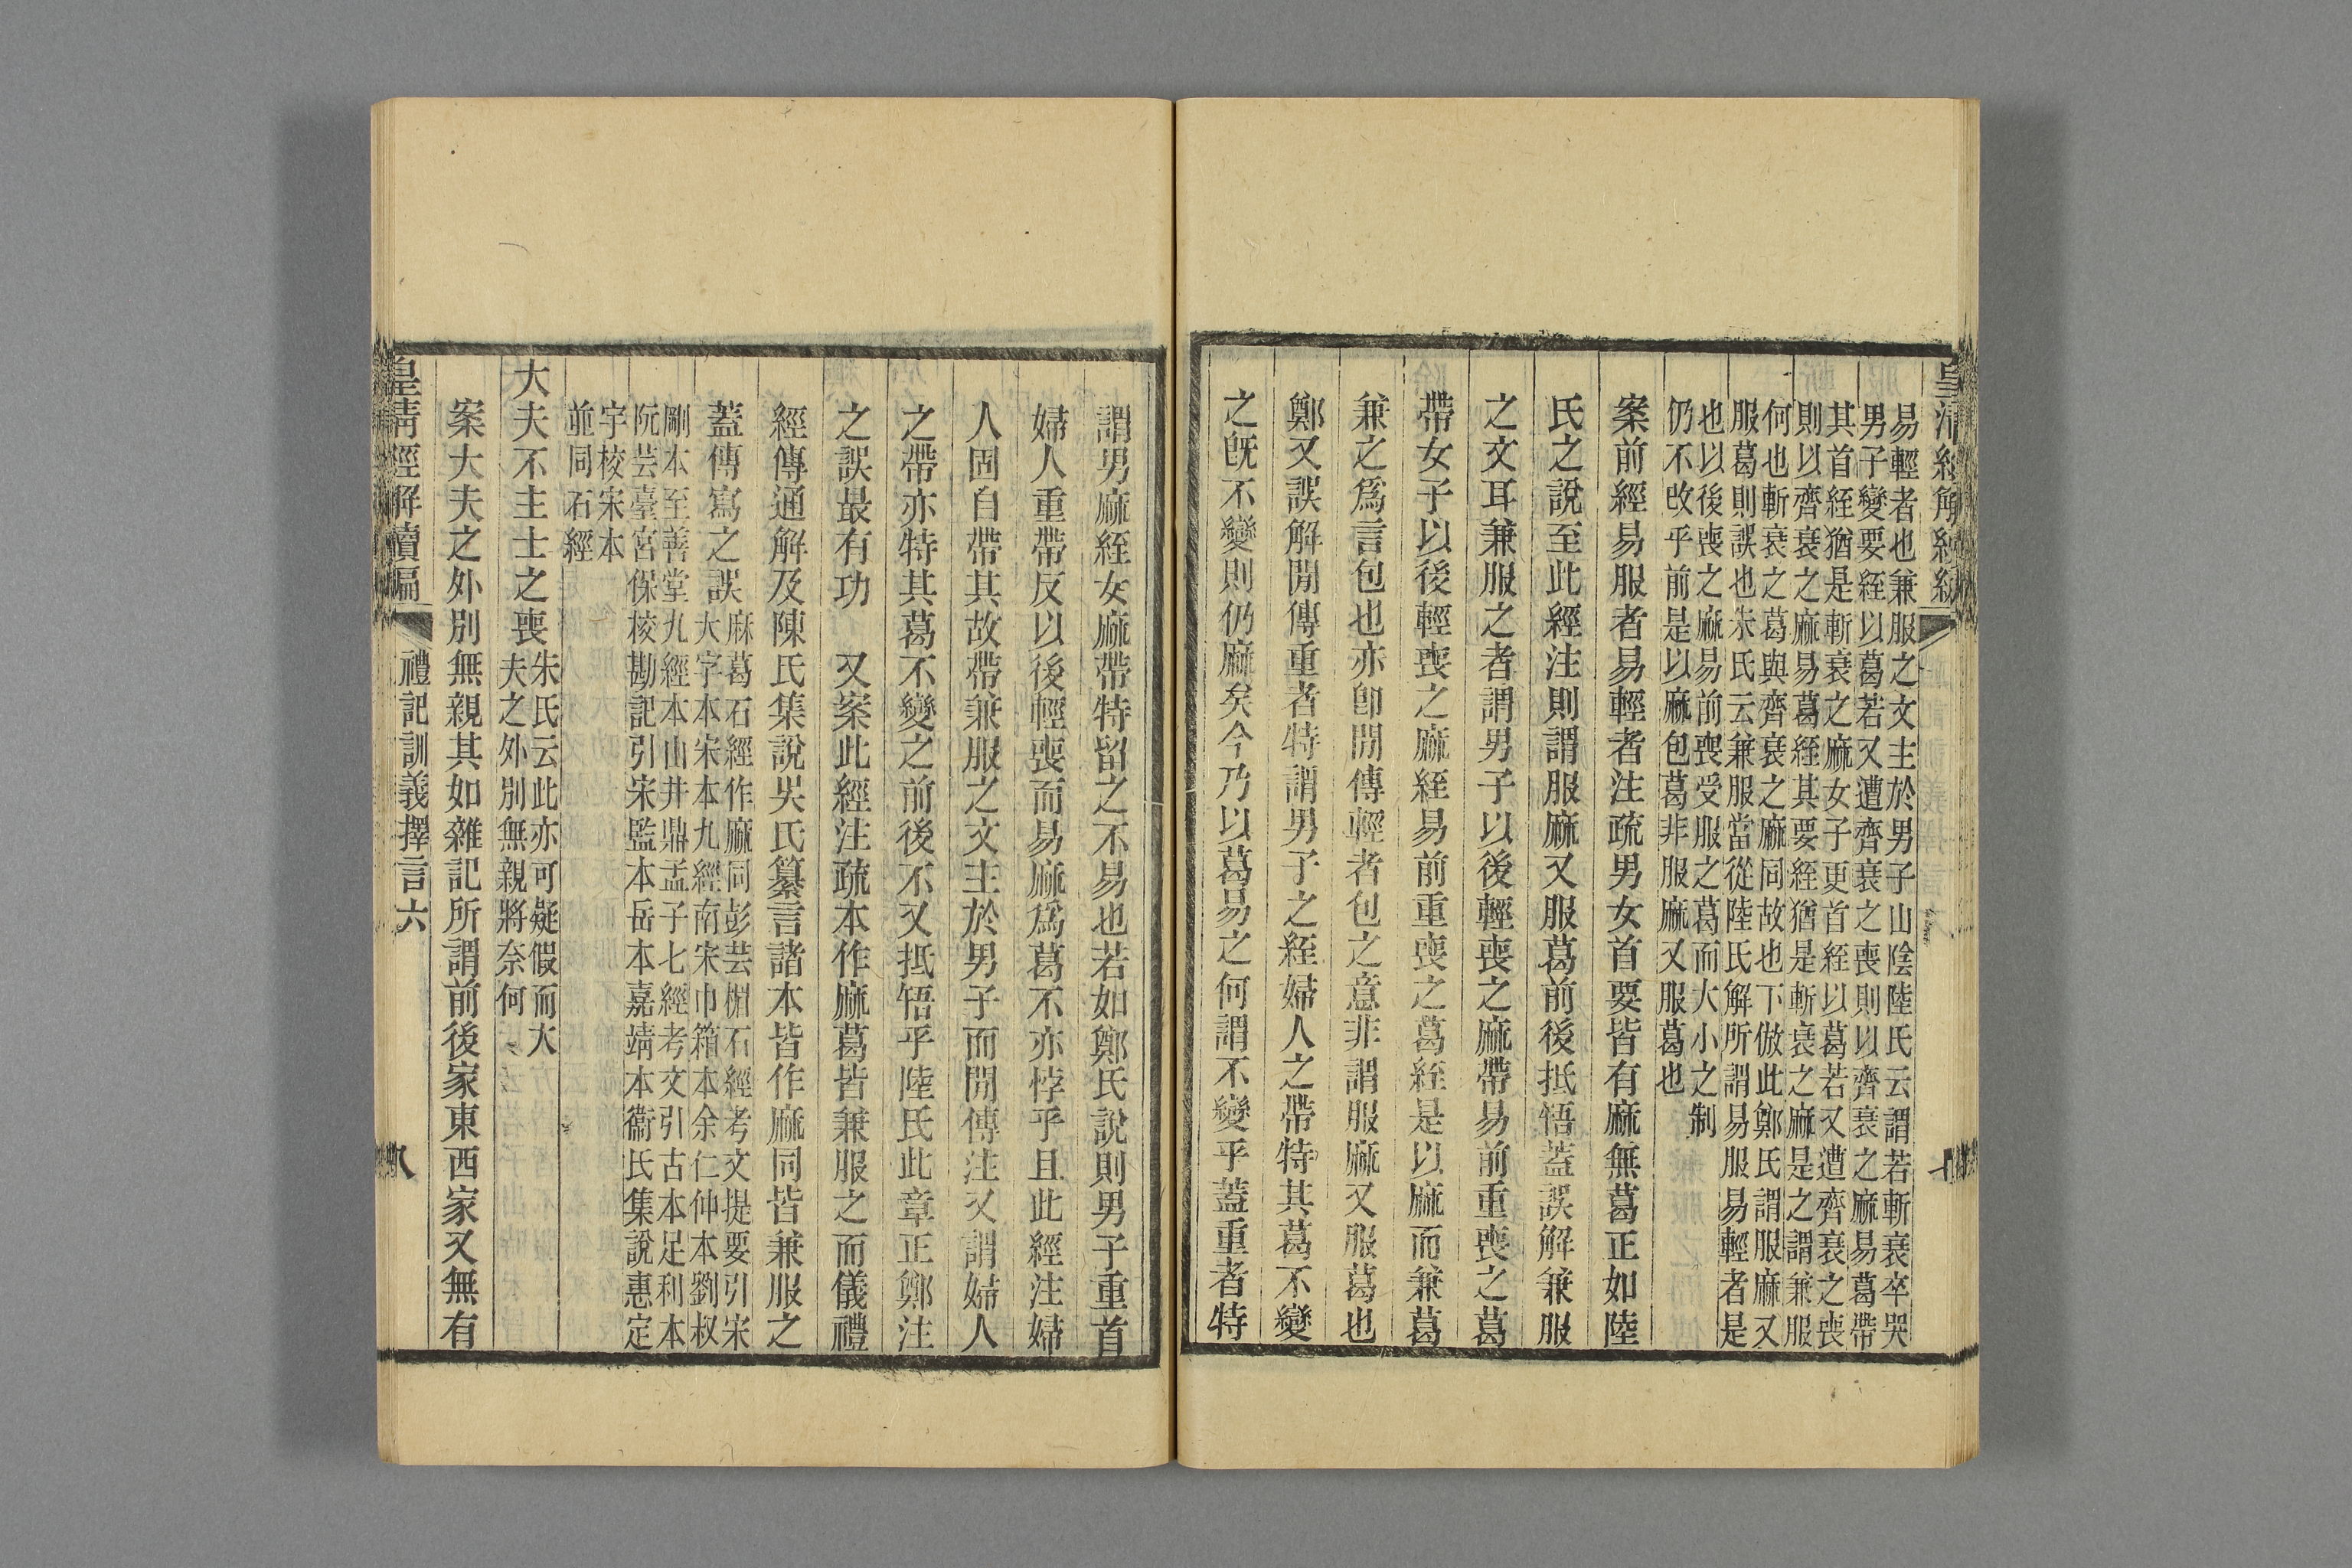 易輕者也兼服之文主於男子山陰陸氏云謂若斬衰卒哭
男子變要絰以葛若又遭齊衰之喪則以齊衰之麻易葛帶
其首絰猶是斬衰之麻女子更首絰以葛若又遭齊衰之喪
則以齊衰之麻易葛絰其要絰猶是斬衰之麻是之謂兼服
何也斬衰之葛與齊衰之麻同故也下倣此鄭氏謂服麻又
服葛則誤也朱氏云兼服當從陸氏解所謂易服易輕者是
也以後喪之麻易前喪受服之葛而大小之制
仍不改乎前是以麻包葛非服麻又服葛也
案前經易服者易輕者注疏男女首要皆有麻無葛正如陸
氏之說至此經注則謂服麻又服葛前後抵悟蓋誤解兼服
之文耳兼服之者謂男子以後輕喪之麻帶易前重喪之葛
帶女子以後輕喪之麻絰易前重喪之葛絰是以麻而兼葛
兼之爲言包也亦卽閒傳輕者包之意非謂服麻又服葛也
鄭又誤解閒傳重者特謂男子之絰婦人之帶特其葛不變
之旣不變則仍麻矣今乃以葛易之何謂不變乎蓋重者特
謂男麻絰女麻帶特留之不易也若如鄭氏說則男子重首
婦人重帶反以後輕喪而易麻爲葛不亦悖乎且此經注婦
人固自帶其故帶兼服之文主於男子而閒傳注又謂婦人
之帶亦特其葛不變之前後不又抵牾乎陸氏此章正鄭注
之誤最有功　又案此經注疏本作麻葛皆兼服之而儀禮
經傳通解及陳氏集說吳氏纂言諸本皆作麻同皆兼服之
蓋傳寫之誤麻葛石經作麻同彭芸楣石經考文提要引宋
大字本宋本九經南宋巾箱本余仁仲本劉叔
剛本至善堂九經本山井鼎孟子七經考文引古本足利本
阮芸臺宮保校勘記引宋監本岳本嘉靖本衞氏集說惠定
宇校宋本
並同石經
大夫不主士之喪朱氏云此亦可疑假而大
夫之外別無親將奈何
案大夫之外別無親其如雜記所謂前後家東西家又無有
皇清經解續編　禮記訓義擇言六　八